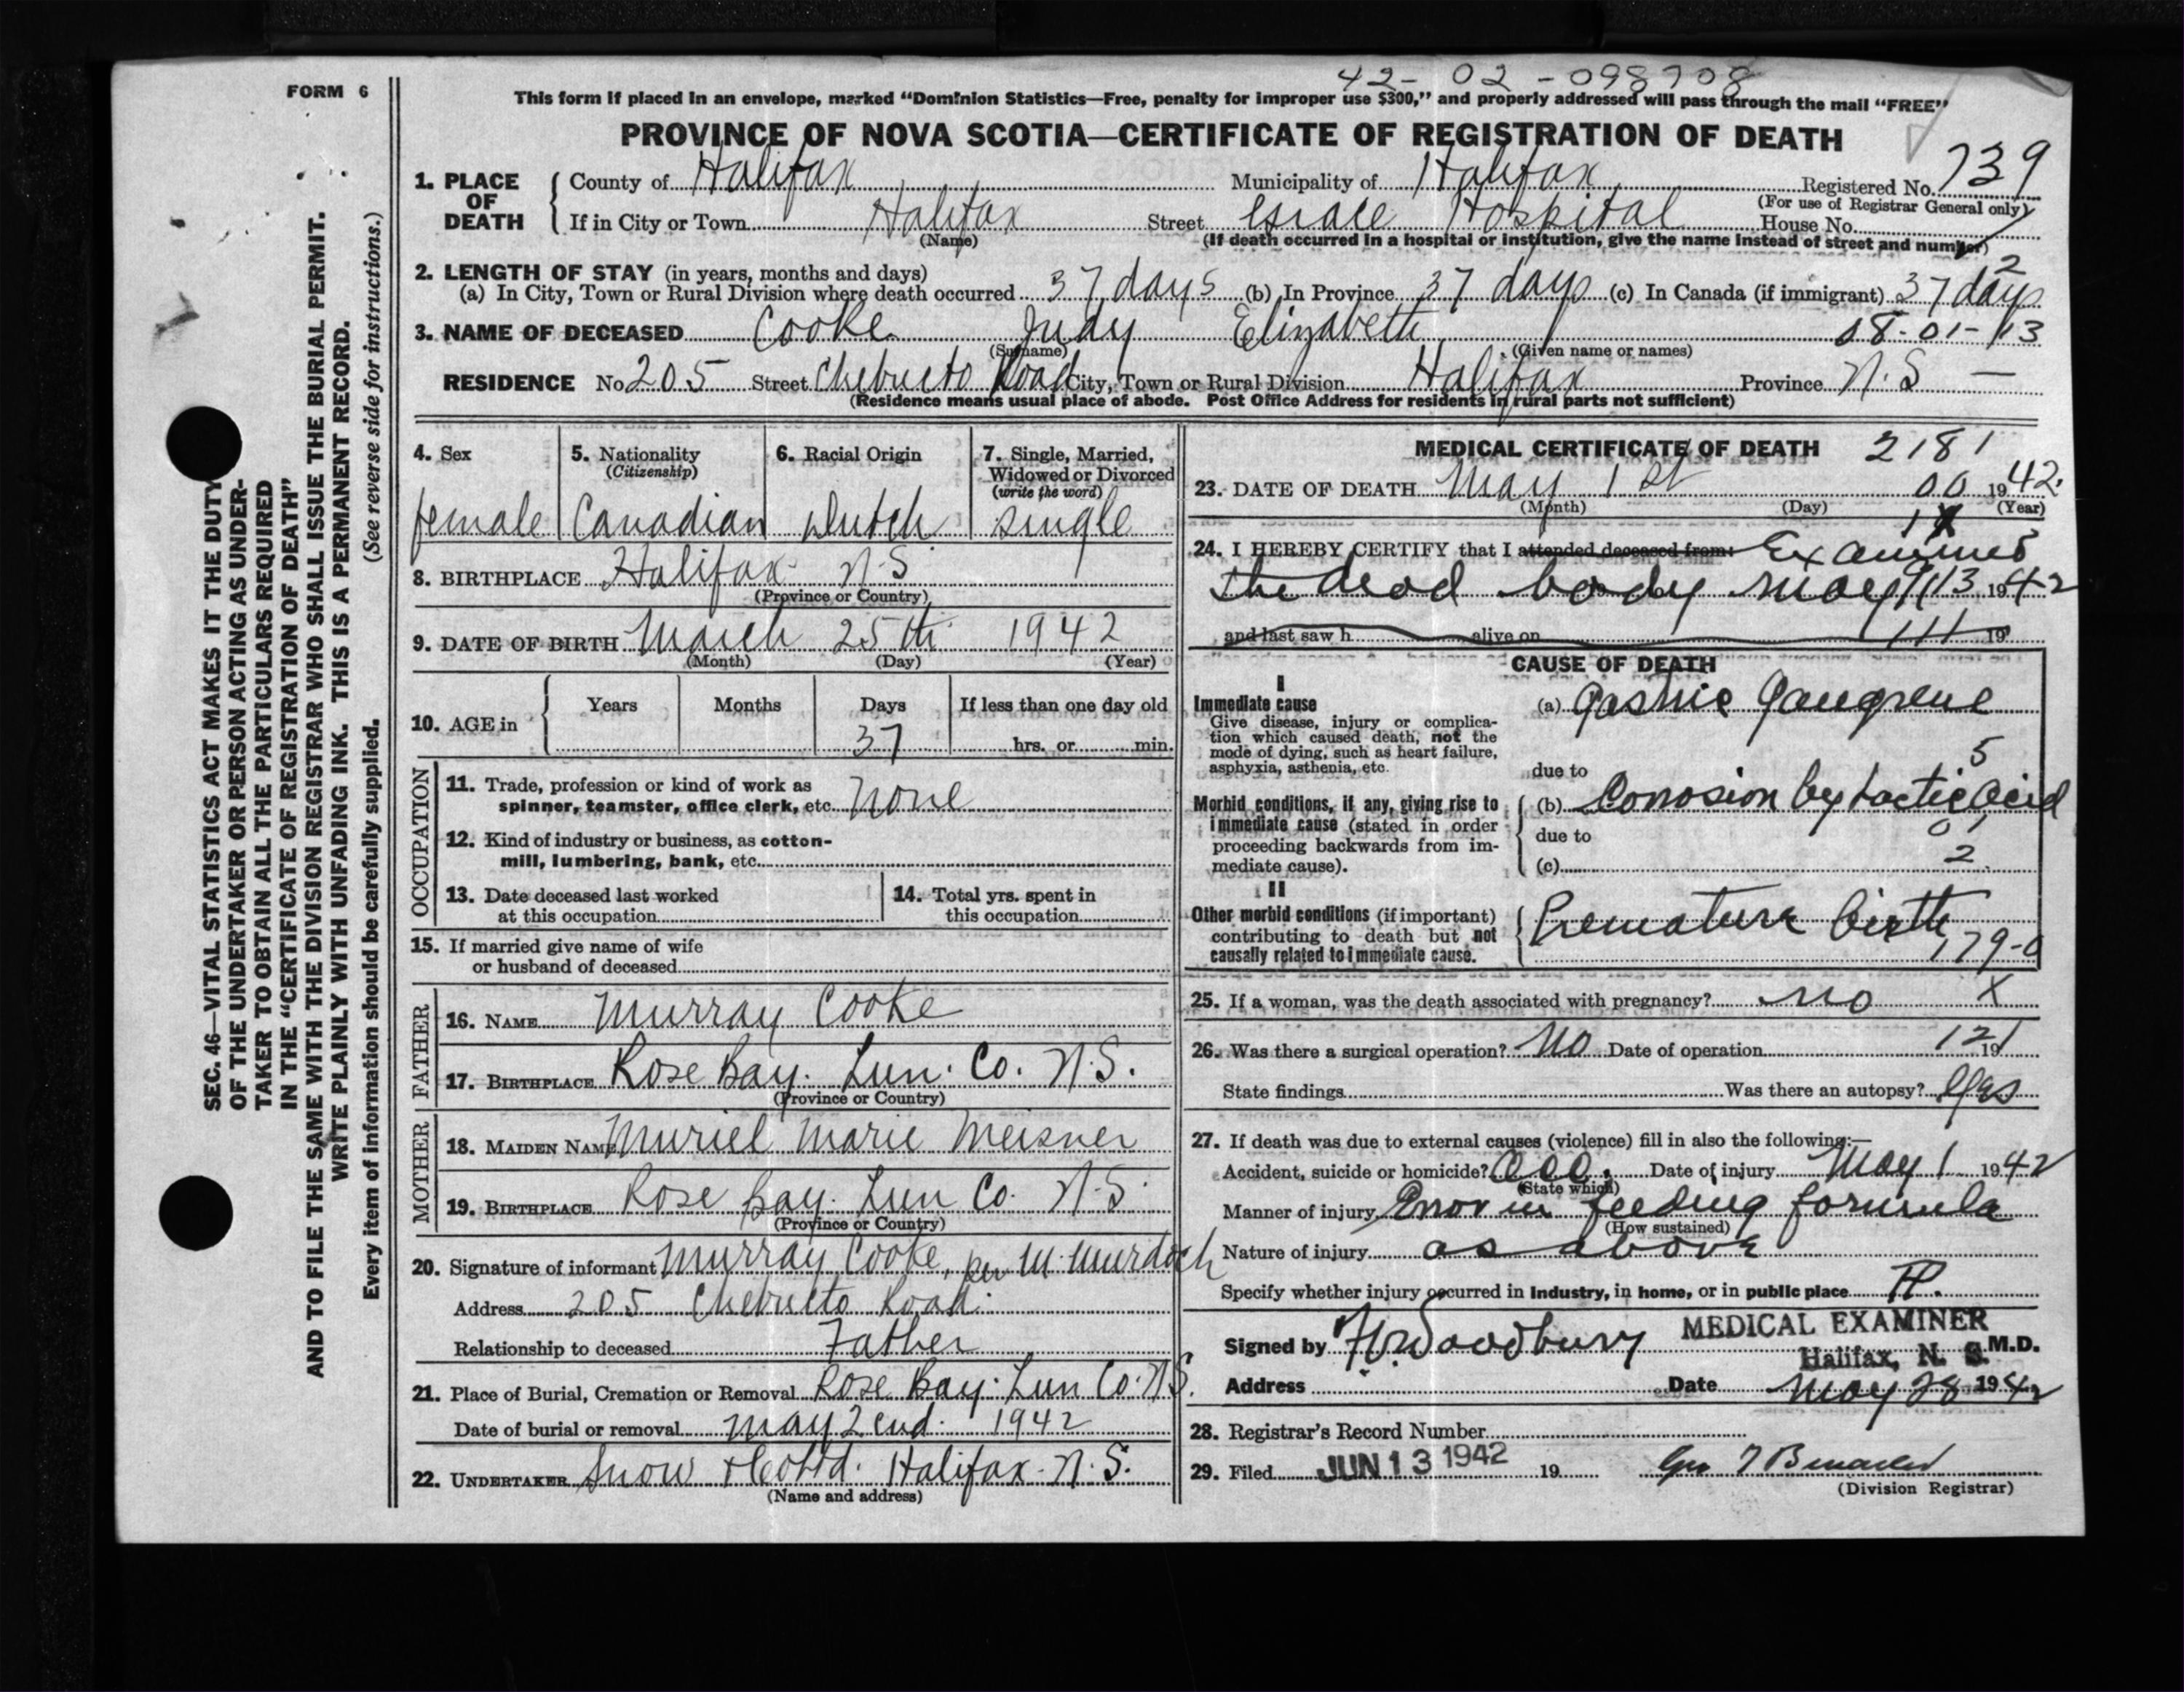 42-02-098708
FORM 6
This form if placed in an envelope, marked “Dominion Statistics—Free, penalty for improper use $300,” and properly addressed will pass through the mail “FREE”
PROVINCE OF NOVA SCOTIA—CERTIFICATE OF REGISTRATION OF DEATH
1. PLACE OF DEATH County of Halifax Municipality of Halifax Registered No. 739
(For use of Registrar General only)
If in City or Town Halifax Street Grace Hospital House No.
(Name) (If death occurred in a hospital or institution, give the name instead of street and number)
2
2. LENGTH OF STAY (in years, months and days)
(a) In City, Town or Rural Division where death occurred 37 days (b) In Province 37 days (c) In Canada (if immigrant) 37 days
3. NAME OF DECEASED Cooke Judy Elizabeth 08-01-13
(Surname) (Given name or names)
RESIDENCE No 205 Street Chebucto Road City, Town or Rural Division Halifax Province N.S —
(Residence means usual place of abode. Post Office Address for residents in rural parts not sufficient)
SEC. 46—VITAL STATISTICS ACT MAKES IT THE DUTY
OF THE UNDERTAKER OR PERSON ACTING AS UNDER-
TAKER TO OBTAIN ALL THE PARTICULARS REQUIRED
IN THE “CERTIFICATE OF REGISTRATION OF DEATH”
AND TO FILE THE SAME WITH THE DIVISION REGISTRAR WHO SHALL ISSUE THE BURIAL PERMIT.
WRITE PLAINLY WITH UNFADING INK. THIS IS A PERMANENT RECORD.
Every item of information should be carefully supplied. (See reverse side for instructions.)
4. Sex 5. Nationality 6. Racial Origin 7. Single, Married,
(Citizenship) Widowed or Divorced
(write the word)
female Canadian Dutch single
8. BIRTHPLACE Halifax N.S
(Province or Country)
9. DATE OF BIRTH March 25th 1942
(Month) (Day) (Year)
10. AGE in Years Months Days If less than one day old
37 hrs. or min.
OCCUPATION
11. Trade, profession or kind of work as
spinner, teamster, office clerk, etc. none
12. Kind of industry or business, as cotton-
mill, lumbering, bank, etc.
13. Date deceased last worked
at this occupation
14. Total yrs. spent in
this occupation
15. If married give name of wife
or husband of deceased
FATHER
16. NAME Murray Cooke
17. BIRTHPLACE Rose Bay. Lun. Co. N.S.
(Province or Country)
MOTHER
18. MAIDEN NAME Muriel Marie Meisner
19. BIRTHPLACE Rose Bay. Lun Co. N.S.
(Province or Country)
20. Signature of informant Murray Cooke, per M. Murdoch
Address 205 Chebucto Road.
Relationship to deceased Father
21. Place of Burial, Cremation or Removal Rose Bay. Lun Co. N.S.
Date of burial or removal May 2end. 1942
22. UNDERTAKER Snow & Co Ltd. Halifax. N.S.
(Name and address)
MEDICAL CERTIFICATE OF DEATH 2181
23. DATE OF DEATH May 1st 00 1942.
(Month) (Day) (Year)
24. I HEREBY CERTIFY that I attended deceased from: Examined
the dead body May 1942
and last saw h alive on 19
CAUSE OF DEATH
I
Immediate cause (a) Gastric Gangrene
Give disease, injury or complica-
tion which caused death, not the
mode of dying, such as heart failure,
asphyxia, asthenia, etc.
5
due to
Morbid conditions, if any, giving rise to (b) Corrosion by Lactic Acid
immediate cause (stated in order due to 01
proceeding backwards from im-
mediate cause). (c) 2
II
Other morbid conditions (if important) Premature birth
contributing to death but not
causally related to immediate cause. 179-0
25. If a woman, was the death associated with pregnancy? no X
26. Was there a surgical operation? No Date of operation 19 121
State findings Was there an autopsy? Yes
27. If death was due to external causes (violence) fill in also the following:—
Accident, suicide or homicide? Acc. Date of injury May 1 1942
(State which)
Manner of injury Error in feeding formula
(How sustained)
Nature of injury as above
Specify whether injury occurred in industry, in home, or in public place
Signed by Woodbury MEDICAL EXAMINER
Halifax, N. S. M.D.
Address Date May 28 1942
28. Registrar’s Record Number
29. Filed JUN 13 1942 19
(Division Registrar)